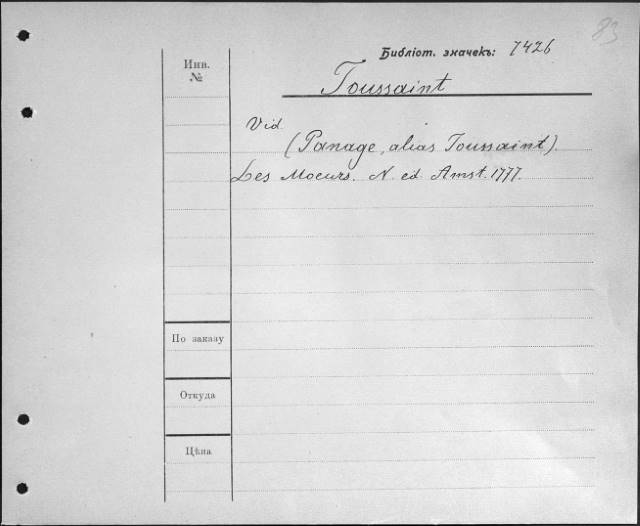 83
Библіот. значекъ: 7426
Инв.
№
Toussaint
Vid.
(Panage, alias Toussaint).
Les Moeurs. N. ed. Amst. 1777.
По заказу
Откуда
Цѣна